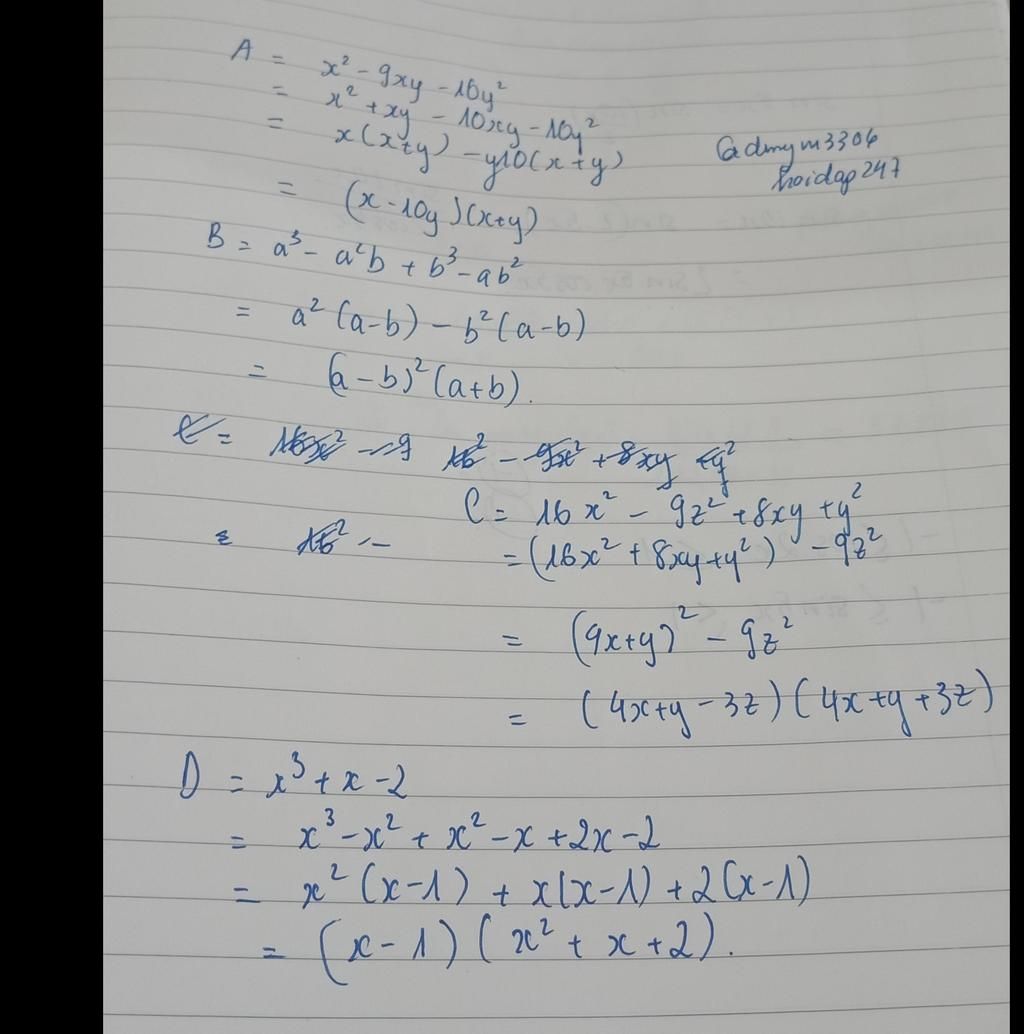 A = x² - 9xy - 10y²
= x² + xy - 10xy - 10y²
= x(x+y) - y10(x+y)
= (x - 10y)(x+y)
@dmym3304
hoidap247
B = a³ - a²b + b³ - ab²
= a² (a-b) - b² (a-b)
= (a-b)² (a+b).
C = 16x² - 9z² + 8xy + y²
= (16x² + 8xy + y²) - 9z²
= (4x+y)² - 9z²
= (4x+y-3z)(4x+y+3z)
D = x³ + x - 2
= x³ - x² + x² - x + 2x - 2
= x² (x-1) + x(x-1) + 2(x-1)
= (x-1)(x² + x + 2).